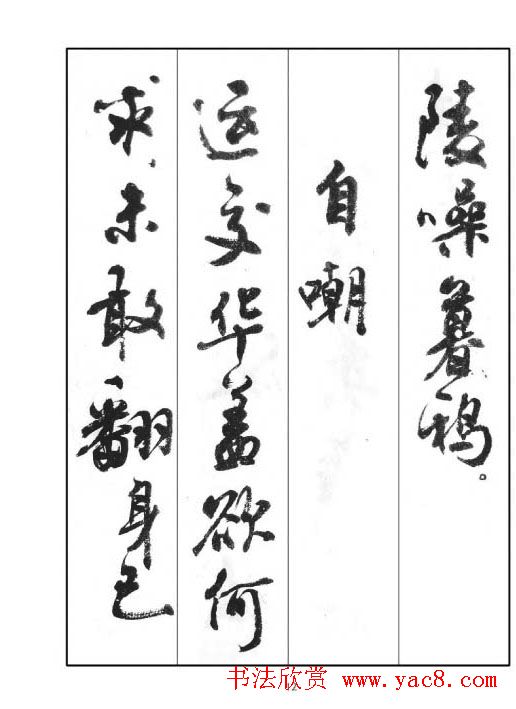 陵噪暮鸦。
自嘲
运交华盖欲何
求未敢翻身已
书法欣赏 www.yac8.com